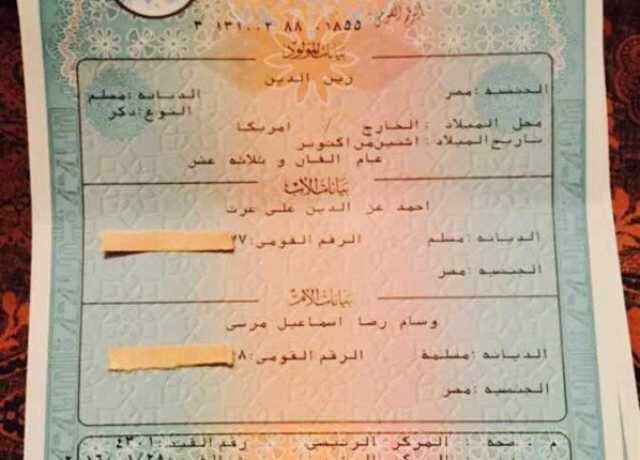 الرقم القومى
٣ ١٣١٠٠٢ ٨٨ ٠١٨٥٥
بيانات المولود
زين الدين
الجنسيه :مصر
الديانه :مسلم
النوع :ذكر
محل الميلاد :الخارج / امريكا
تاريخ الميلاد :اثنين من اكتوبر
عام الفان و ثلاثه عشر
بيانات الأب
احمد عز الدين على عزت
الديانه :مسلم
الرقم القومى :٢٧
الجنسيه :مصر
بيانات الأم
وسام رضا اسماعيل مرسى
الديانه :مسلمة
الرقم القومى :٢٨
الجنسيه :مصر
المركز الرئيسى
رقم القيد :٤٣٠١